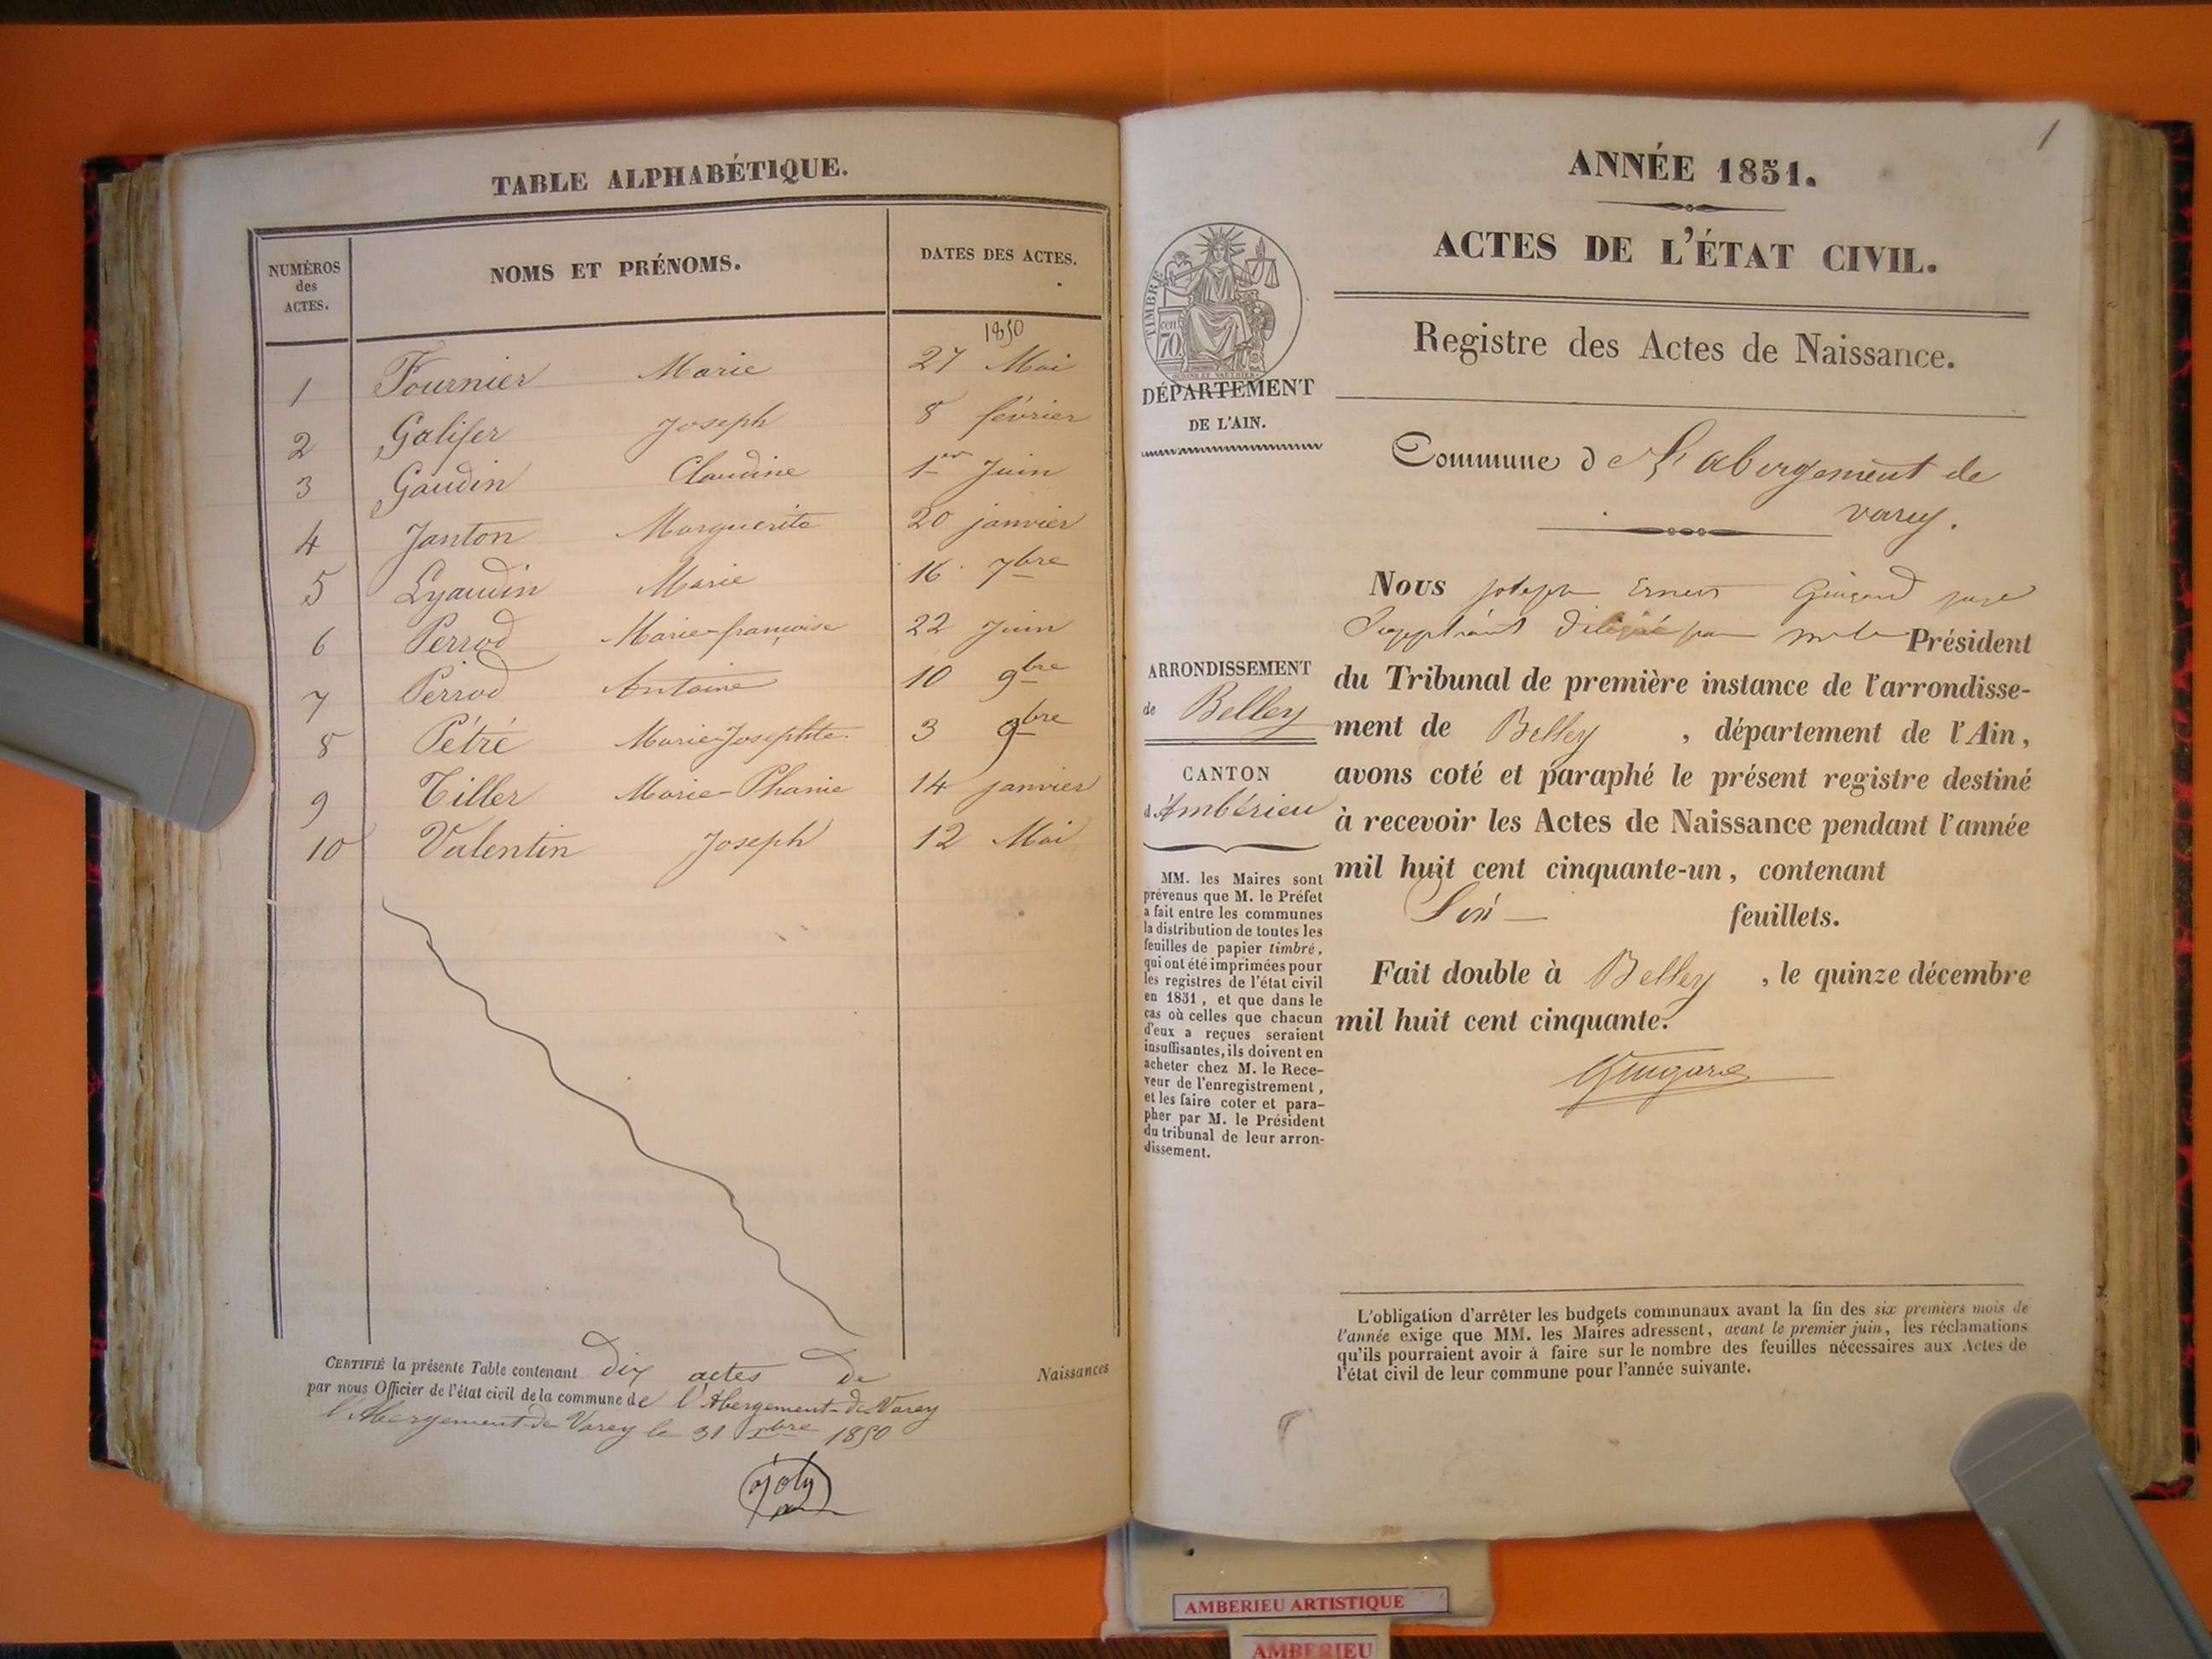 TABLE ALPHABÉTIQUE.
NUMÉROS des ACTES.
NOMS ET PRÉNOMS.
DATES DES ACTES.
1850
1 Fournier Marie 27 Mai
2 Galifer Joseph 8 février
3 Gaudin Claudine 1er Juin
4 Janton Marguerite 20 janvier
5 Lyaudin Marie 16 7bre
6 Perrod Marie-françoise 22 Juin
7 Perrod Antoine 10 9bre
8 Pétré Marie-Josephte 3 9bre
9 Tiller Marie-Phanie 14 janvier
10 Valentin Joseph 12 Mai
CERTIFIÉ la présente Table contenant dix actes de Naissances
par nous Officier de l'état civil de la commune de l'Abergement-de-Varey
l'Abergement-de Varey le 31 Xbre 1850
Joly
1
ANNÉE 1851.
ACTES DE L'ÉTAT CIVIL.
Registre des Actes de Naissance.
TIMBRE
70 cen
DÉPARTEMENT
DE L'AIN.
Commune de L'abergement de
varey.
Nous joseph Ernest Guigard juge
Suppléant délégué par mr le Président
du Tribunal de première instance de l'arrondisse-
ment de Belley, département de l'Ain,
avons coté et paraphé le présent registre destiné
à recevoir les Actes de Naissance pendant l'année
mil huit cent cinquante-un, contenant
feuillets.
Fait double à Belley, le quinze décembre
mil huit cent cinquante.
Guigard
ARRONDISSEMENT
de Belley
CANTON
d'Ambérieu
MM. les Maires sont
prévenus que M. le Préfet
a fait entre les communes
la distribution de toutes les
feuilles de papier timbré,
qui ont été imprimées pour
les registres de l'état civil
en 1851, et que dans le
cas où celles que chacun
d'eux a reçues seraient
insuffisantes, ils doivent en
acheter chez M. le Rece-
veur de l'enregistrement,
et les faire coter et para-
pher par M. le Président
du tribunal de leur arron-
dissement.
L'obligation d'arrêter les budgets communaux avant la fin des six premiers mois de
l'année exige que MM. les Maires adressent, avant le premier juin, les réclamations
qu'ils pourraient avoir à faire sur le nombre des feuilles nécessaires aux Actes de
l'état civil de leur commune pour l'année suivante.
AMBERIEU ARTISTIQUE
AMBERIEU